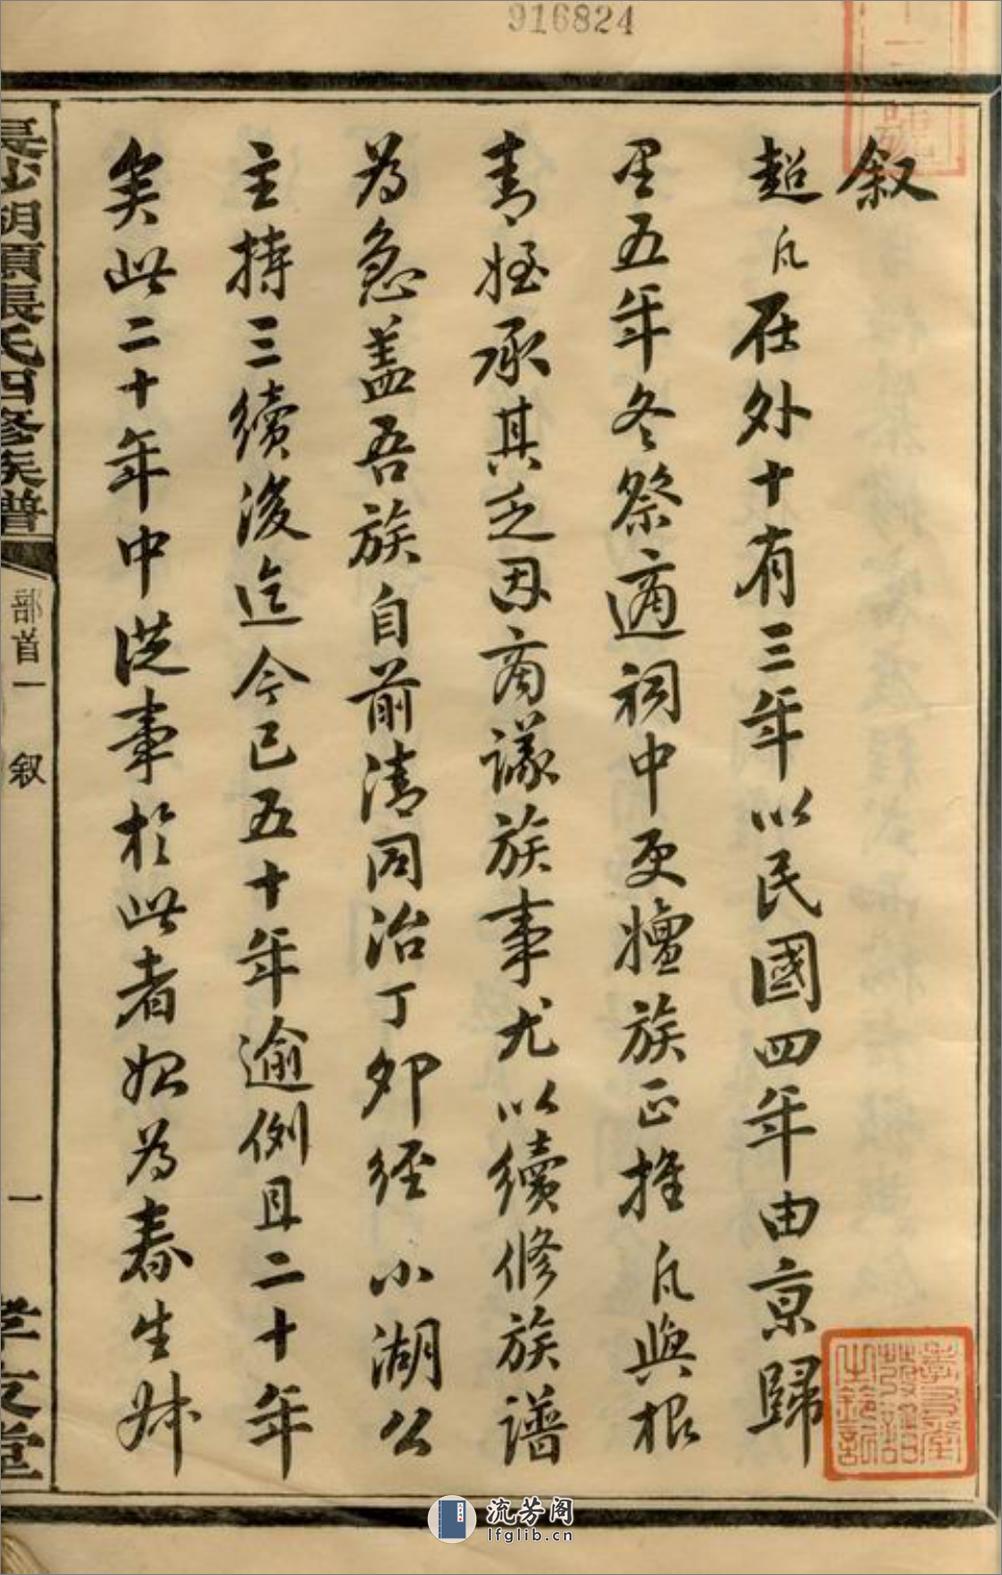 916824
叙
超凡在外十有三年以民國四年由京歸
里五年冬祭適祠中更壇族正推凡與根
青姪承其乏因商議族事尤以續修族譜
為急蓋吾族自前清同治丁卯經小湖公
主持三續後迄今已五十年逾例且二十年
矣此二十年中從事於此者始為春生叔
長沙湖頭張氏四修族譜
部首一
叙
一
孝友堂
流芳阁
lfglib.cn